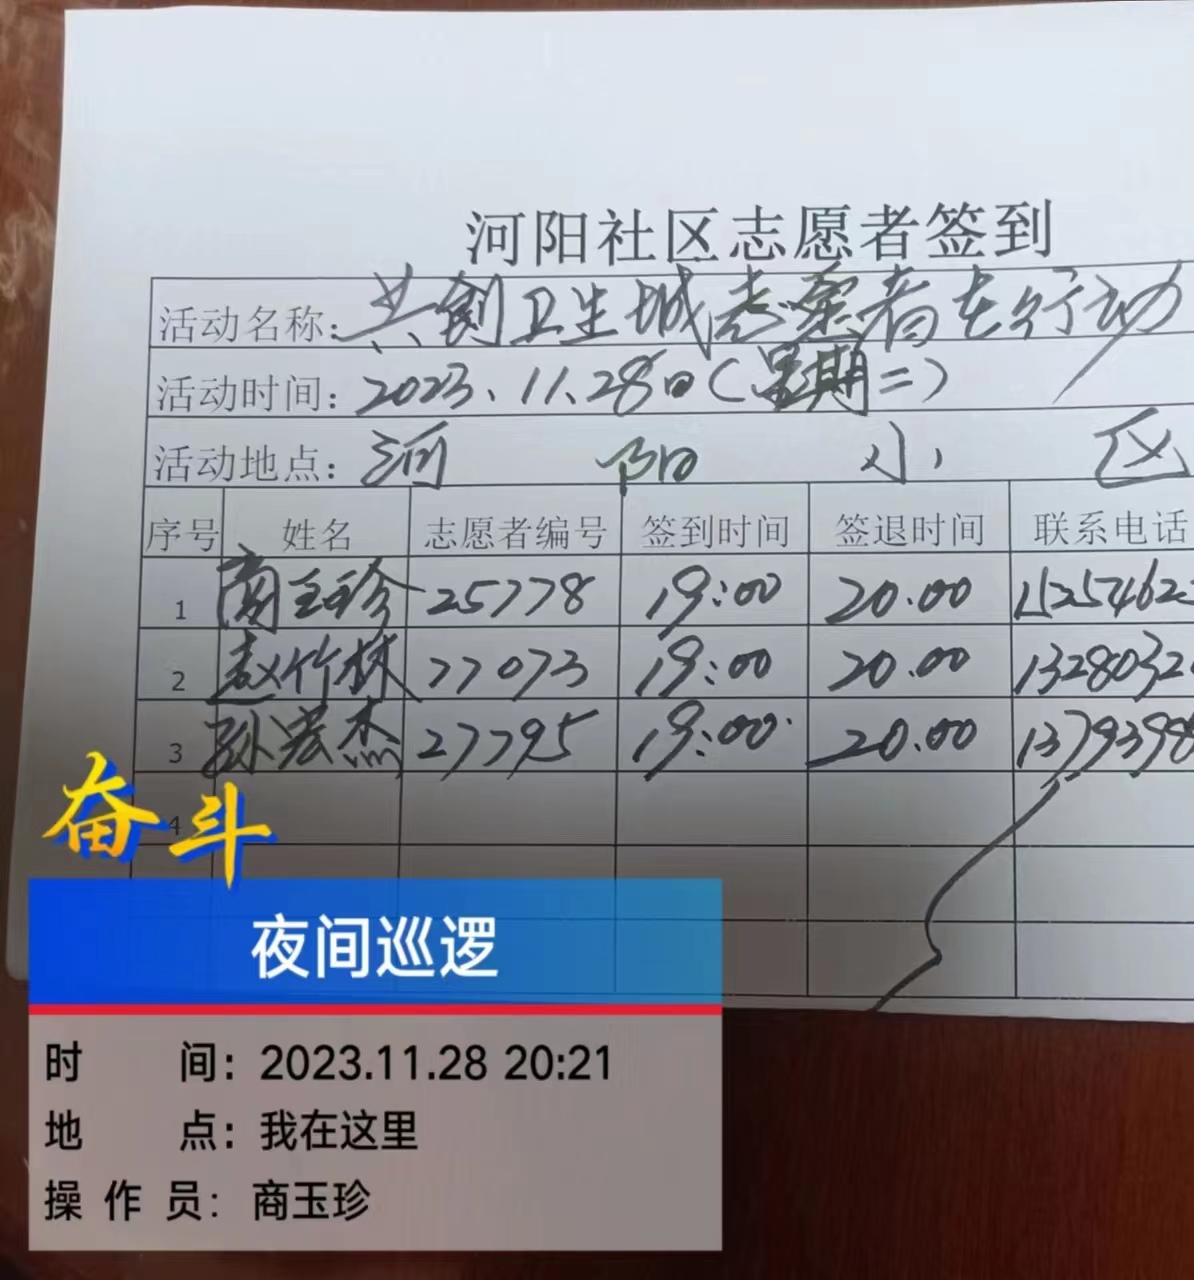 河阳社区志愿者签到
活动名称:共创卫生城志愿者在行动
活动时间:2023.11.28日(星期二)
活动地点:河 阳 小 区
序号 姓名 志愿者编号 签到时间 签退时间 联系电话
1 商玉珍 25778 19:00 20.00 1525462
2 赵竹林 77073 19:00 20.00 1328032
3 孙宏杰 27795 19:00 20.00 1379398
4
奋斗
夜间巡逻
时 间: 2023.11.28 20:21
地 点: 我在这里
操 作 员: 商玉珍